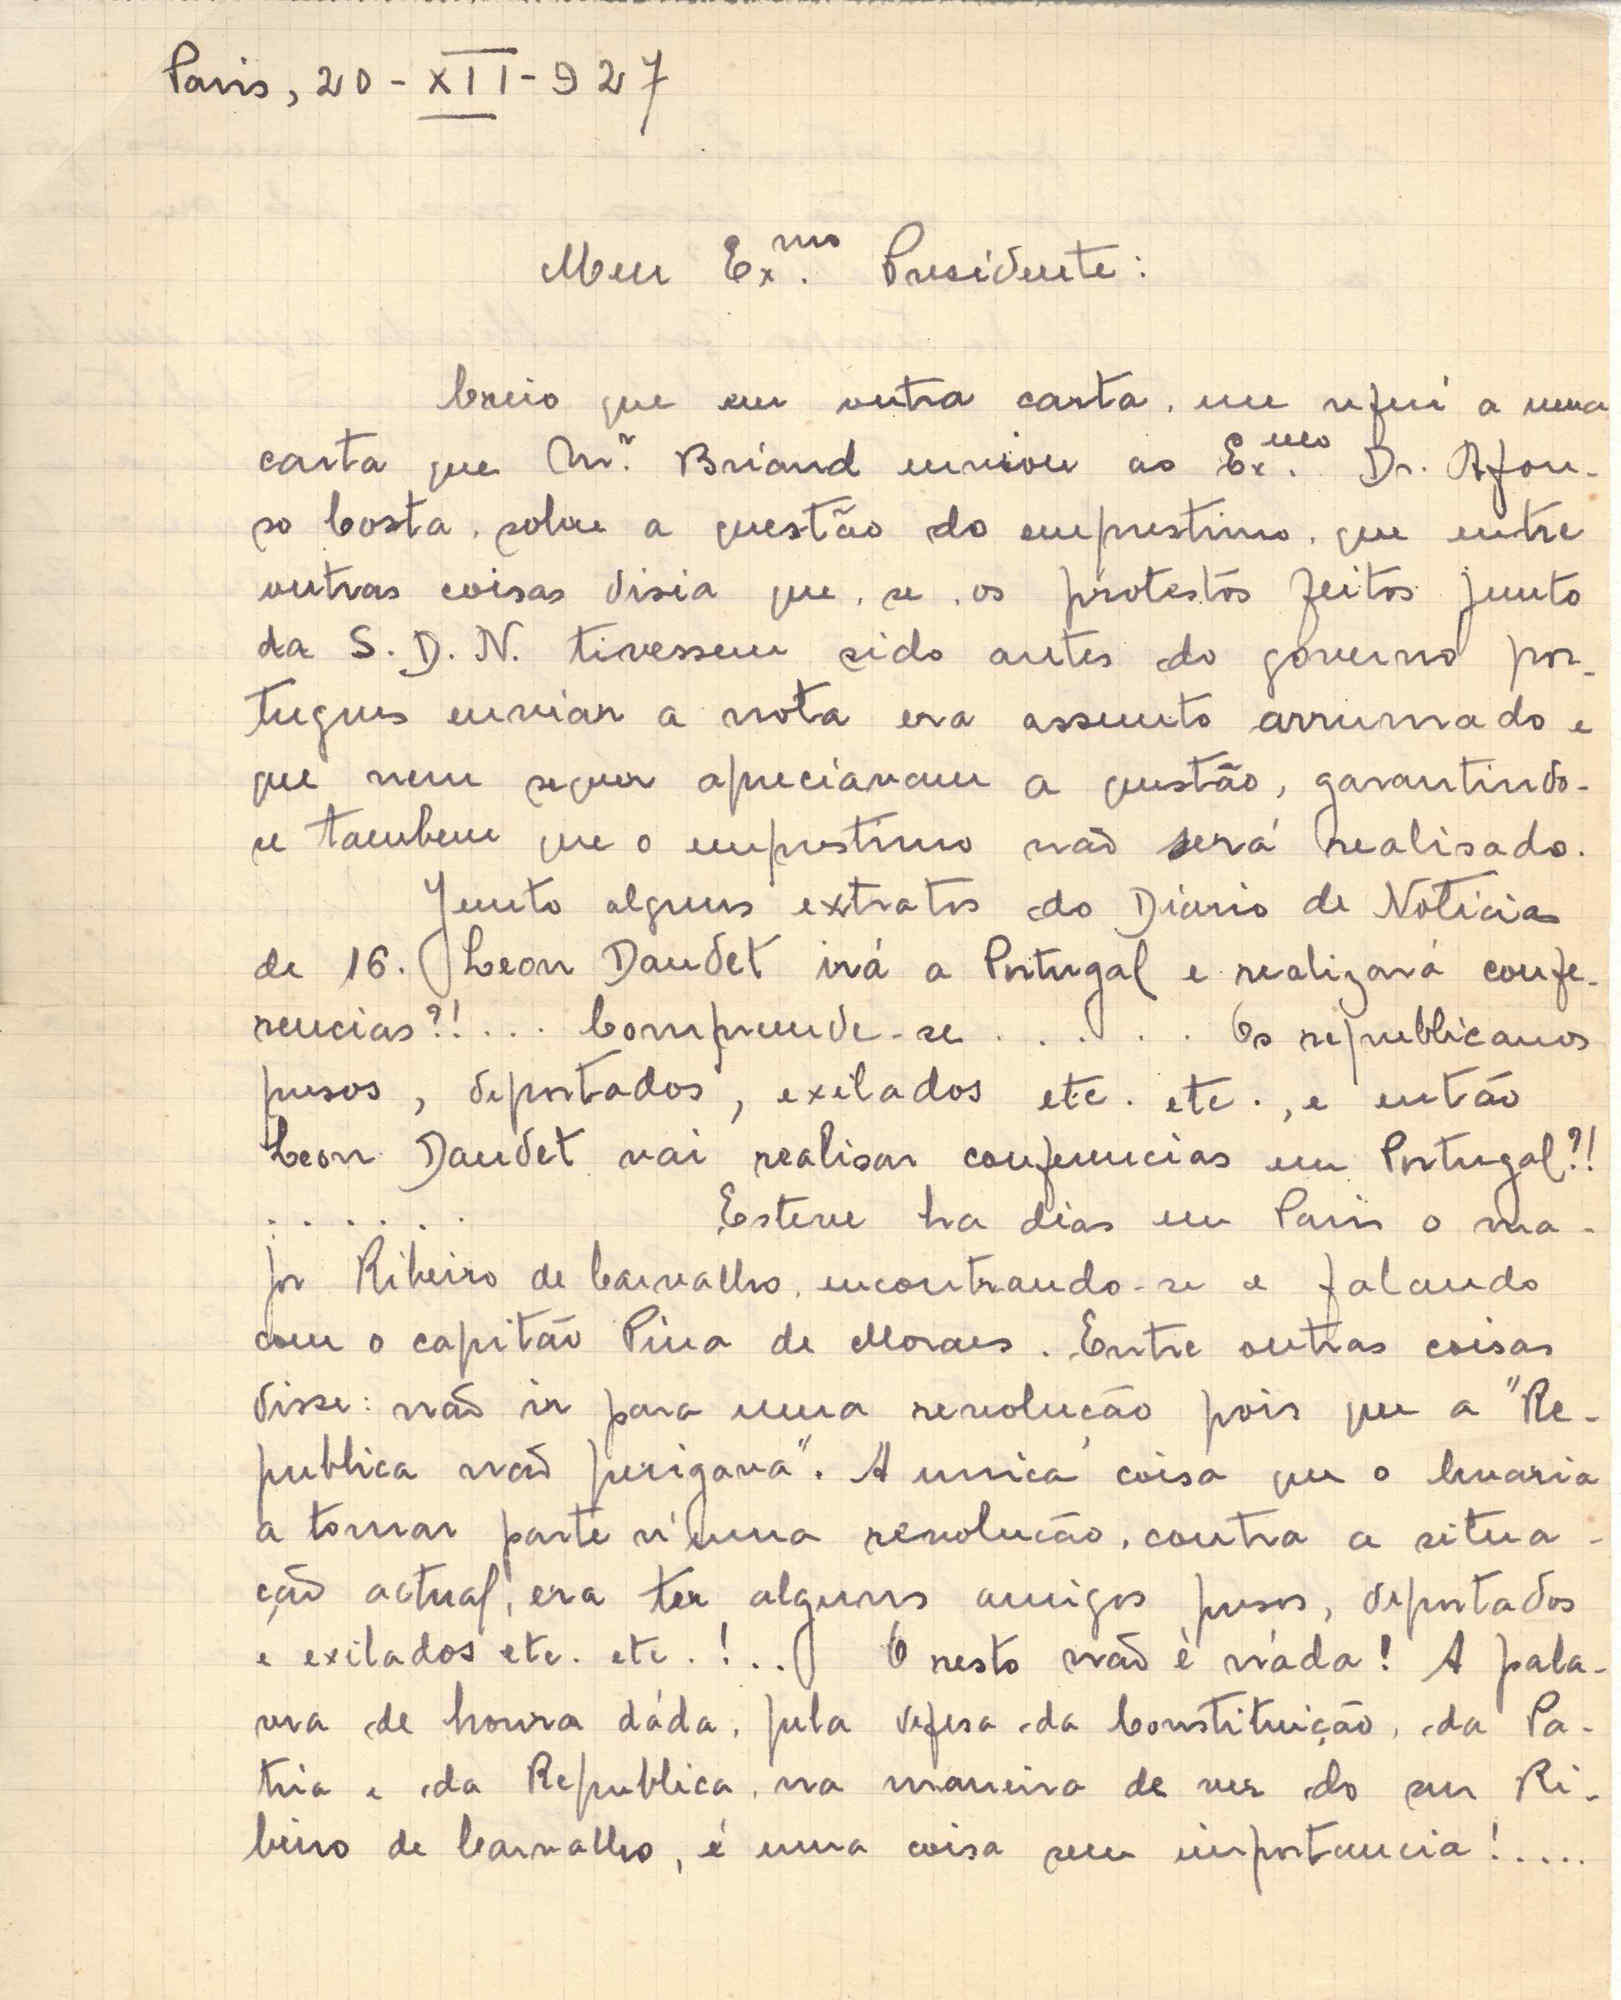 Paris, 20-XII-927
Meu Ex.mo Presidente:
Creio que em outra carta, me referi a uma
carta que Mr. Briand enviou ao Ex.mo Dr. Afon-
so Costa, sobre a questão do emprestimo, que entre
outras coisas disia que, se, os protestos feitos junto
da S.D.N. tivessem sido antes do governo por-
tugues enviar a nota era assunto arrumado e
que nem sequer apreciavam a questão, garantindo-
se tambem que o emprestimo não será realisado.
Junto alguns extratos do Diario de Noticias
de 16. Leon Daudet irá a Portugal e realizará confe-
rencias?!... Compreende-se ...... Os republicanos
presos, deportados, exilados etc. etc., e então
Leon Daudet vai realisar conferencias em Portugal?!
...... Esteve ha dias em Paris o ma-
jor Ribeiro de Carvalho, encontrando-se e falando
com o capitão Pina de Moraes. Entre outras coisas
disse: não ir para uma revolução pois que a "Re-
publica não perigava". A unica coisa que o levaria
a tomar parte n'uma revolução, contra a situa-
ção actual, era ter alguns amigos presos, deportados
e exilados etc. etc.!... O resto não é náda! A pala-
vra de honra dáda, pela defesa da Constituição, da Pa-
tria e da Republica, na maneira de ver do snr Ri-
beiro de Carvalho, é uma coisa sem importancia!....